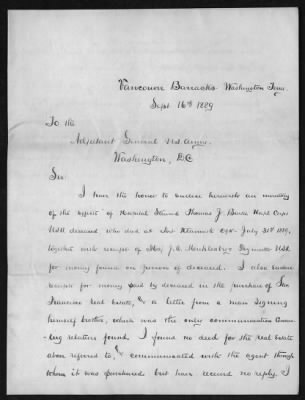 Vancouver Barracks Washington Terr.
Sept 16th 1889
To the
Adjutant General U.S. Army.
Washington, D.C
Sir
I have the honor to enclose herewith an inventory
of the effects of Hospital Steward Thomas J. Burke Hosp Corps
USA deceased who died at Fort Klamath Ogn. July 31st 1889,
together with receipt of J. A. Paymaster USA
for money found on person of deceased. I also enclose
receipts for money paid by deceased in the purchase of San
Francisco real estate, & a letter from a man signing
himself brother, which was the only communication concern-
ing relatives found. I found no deed for the real estate
above referred to, & communicated with the agent through
whom it was purchased but have received no reply. I